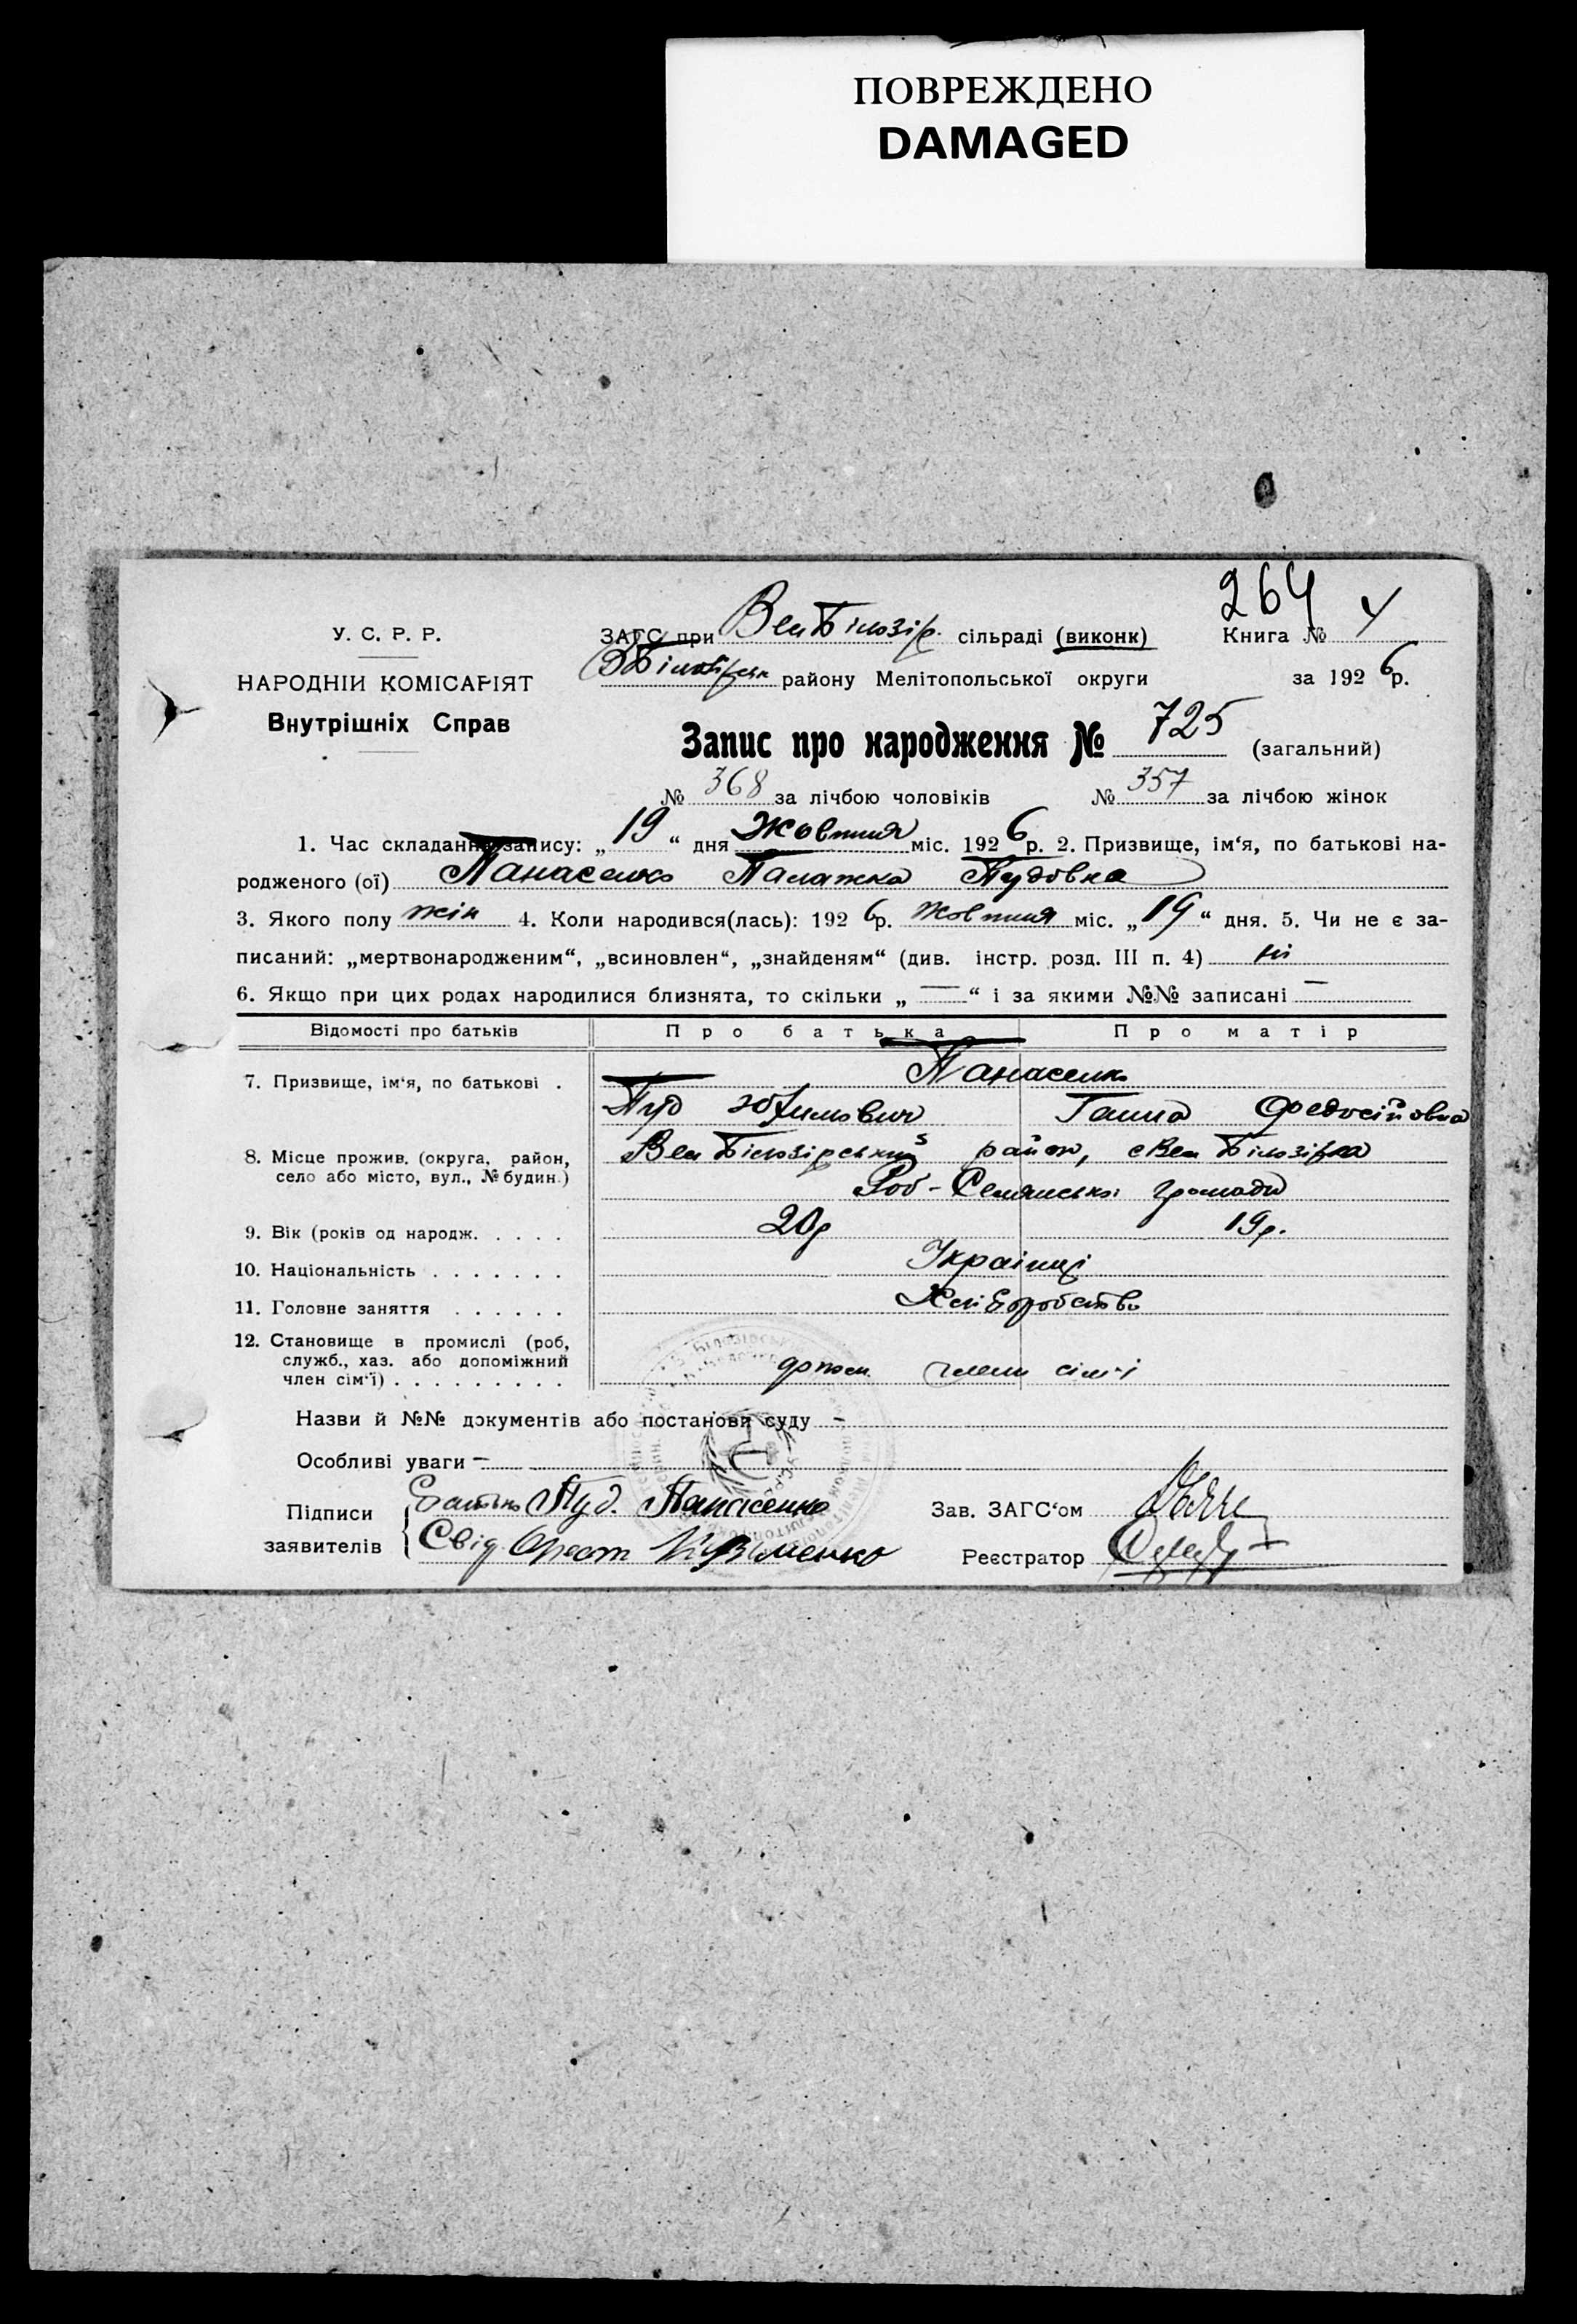 ПОВРЕЖДЕНО
DAMAGED
264
У. С. Р. Р.
ЗАГС при Вел Білозір. сільраді (виконк) Книга № У
НАРОДНІЙ КОМІСАРІЯТ
ВБілозірськ району Мелітопольської округи за 1926р.
Внутрішніх Справ
Запис про народження № 725 (загальний)
№ 368 за лічбою чоловіків № 357 за лічбою жінок
1. Час складання запису: „19“ дня Жовтня міс. 1926р. 2. Призвище, ім‘я, по батькові на-
родженого (ої) Панасенко Палажка Пудовна
3. Якого полу жін 4. Коли народився(лась): 1926р. Жовтня міс. „19“ дня. 5. Чи не є за-
писаний: „мертвонародженим“, „всиновлен“, „знайденям“ (див. інстр. розд. III п. 4) ні
6. Якщо при цих родах народилися близнята, то скільки „—“ і за якими №№ записані —
Відомості про батьків Про батька Про матір
7. Призвище, ім‘я, по батькові . Панасенко
Пуд Юхимович Ганна Федосійовна
8. Місце прожив. (округа, район, село або місто, вул., № будин.) Вел Білозірський район, с Вел Білозірка
Роб-Селянської громади
9. Вік (років од народж. . . . . 20р 19р.
10. Національність . . . . . . . Українці
11. Головне заняття . . . . . . Хліборобство
12. Становище в промислі (роб,
служб., хаз. або допоміжний
член сім‘ї) . . . . . . . . . допом. члени сім‘ї
Назви й №№ документів або постанови суду –
Особливі уваги –
Підписи Батько Пуд. Панасенко Зав. ЗАГС‘ом
заявителів Свід Орест Кузьменко Реєстратор